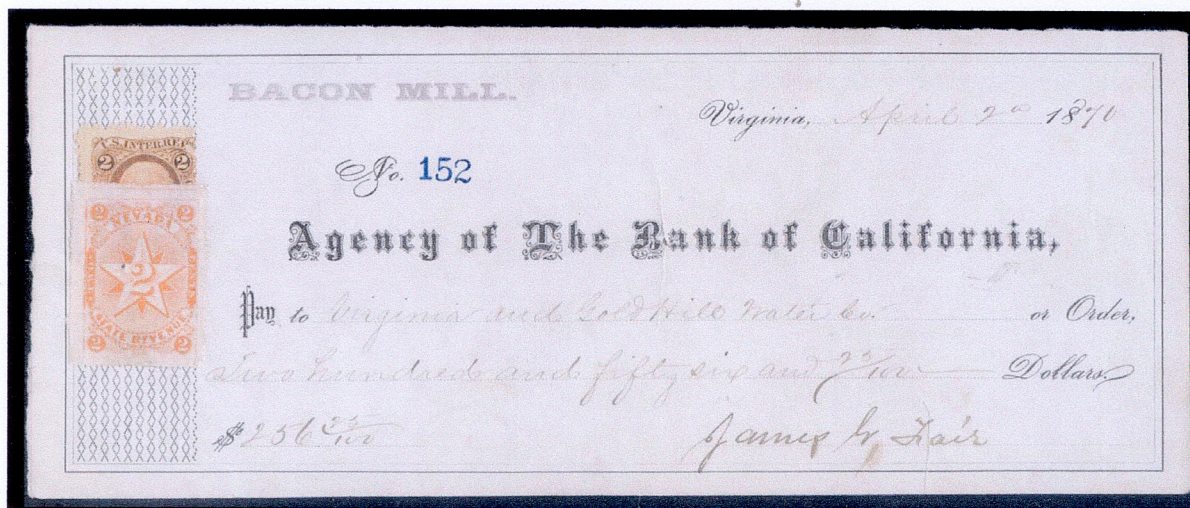 BACON MILL.
Virginia, April 2nd 1870
U.S. INTER REV
2 2
No. 152
2 NEVADA 2
2
STATE REVENUE
2 2
Agency of The Bank of California,
Pay to Virginia and Gold Hill Water Co. or Order,
Two hundred and fifty six and /100 Dollars
$256 /100
James G Fair